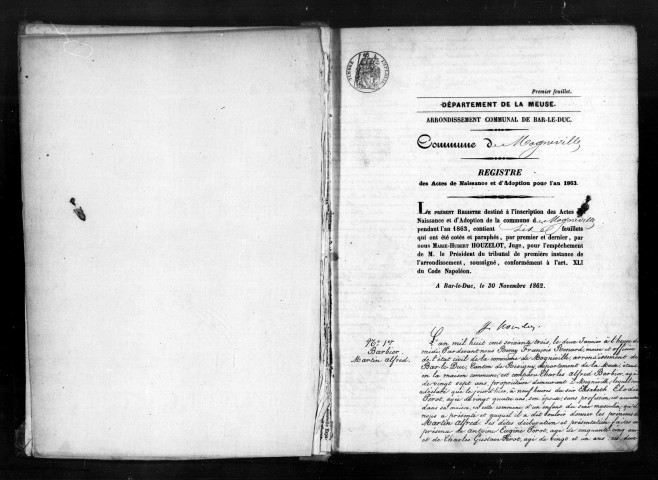 Premier feuillet.
DÉPARTEMENT DE LA MEUSE.
ARRONDISSEMENT COMMUNAL DE BAR-LE-DUC.
Commune de Mogneville
REGISTRE
des Actes de Naissance et d'Adoption pour l'an 1863.
LE PRÉSENT REGISTRE destiné à l'inscription des Actes de
Naissance et d'Adoption de la commune de Mogneville
pendant l'an 1863, contient feuillets
qui ont été cotés et paraphés, par premier et dernier, par
nous MARIE-HUBERT HOUZELOT, Juge, pour l'empêchement
de M. le Président du tribunal de première instance de
l'arrondissement, soussigné, conformément à l'art. XLI
du Code Napoléon.
A Bar-le-Duc, le 30 Novembre 1862.
N° 1er
Barbier
Martin Alfred.
L'an mil huit cent soixante trois, le deux Janvier à l'heure de
midi Pardevant nous François Bernard, maire et officier
de l'état civil de la commune de Mognéville, arrondissement de
Bar-le-Duc, Canton de Revigny, département de la Meuse, étant
en la maison commune, est comparu Charles Alfred Barbier, agé
de vingt sept ans, propriétaire demeurant à Mognéville, lequel nous
a déclaré que le jour d'hier, à neuf heures du soir Elisabeth
Perot, agée de vingt quatre ans, son épouse, sans profession, est accouchée
dans sa maison, en cette commune, d'un enfant du sexe masculin, qu'il
nous a présenté et auquel il a dit vouloir donner les prénoms de
Martin Alfred. Les dites déclaration et présentation faites en
présence de Antoine Eugène Perot, agé de cinquante cinq ans
et de Charles Gustave Perot, agé de vingt et un ans, les deux